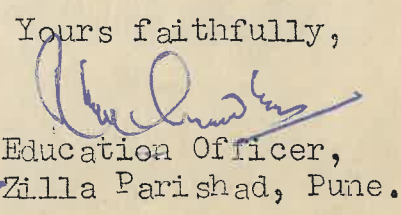 Yours faithfully,
Education Officer,
Zilla Parishad, Pune.